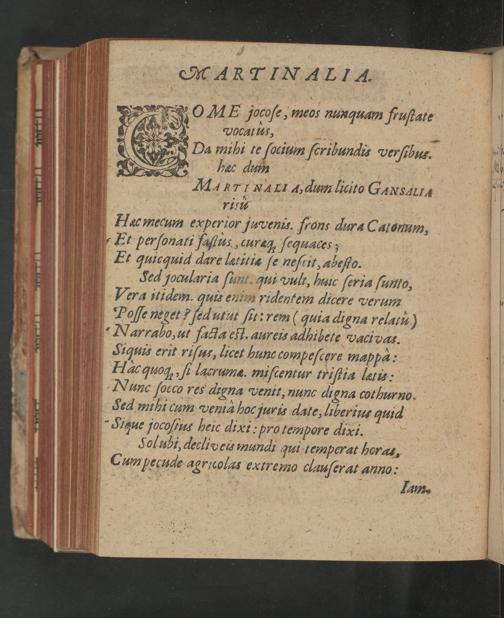 MARTINALIA.
COME jocose, meos nunquam frustate
vocatus,
Da mihi te socium scribundis versibus.
hæc dum
MARTINALIA, dum licito GANSALIA
risû
Hæc mecum experior juvenis. frons dura Catonum,
Et personati fastus, curæq́, sequaces;
Et quicquid dare lætitiæ se nescit, abesto.
Sed jocularia sunt. qui vult, huic seria sunto,
Vera itidem. quis enim ridentem dicere verum
Posse neget? sed utut sit: rem (quia digna relatû)
Narrabo, ut facta est. aureis adhibete vacivas.
Siquis erit risus, licet hunc compescere mappâ:
Hâc quoq́, si lacrumæ. miscentur tristia lætis:
Nunc socco res digna venit, nunc digna cothurno.
Sed mihi cum veniâ hoc juris date, liberius quid
Sique jocosius heic dixi: pro tempore dixi.
Sol ubi, decliveis mundi qui temperat horas,
Cum pecude agricolas extremo clauserat anno:
Iam